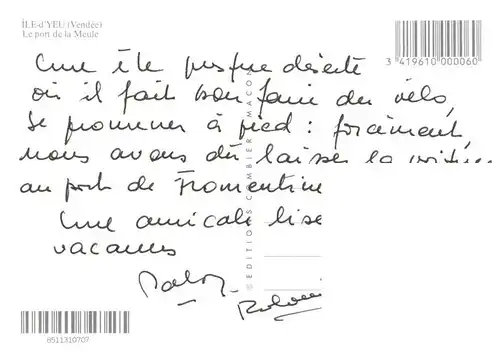 ÎLE-d'YEU (Vendée)
Le port de la Meule
3 419610 000060
Une île presque déserte
où il fait bon faire du vélo,
se promener à pied : forcément,
nous avons dû laisser la voiture
au port de Fromentine
Une amicale bise
vacances
© EDITIONS COMBIER MACON
8511310707